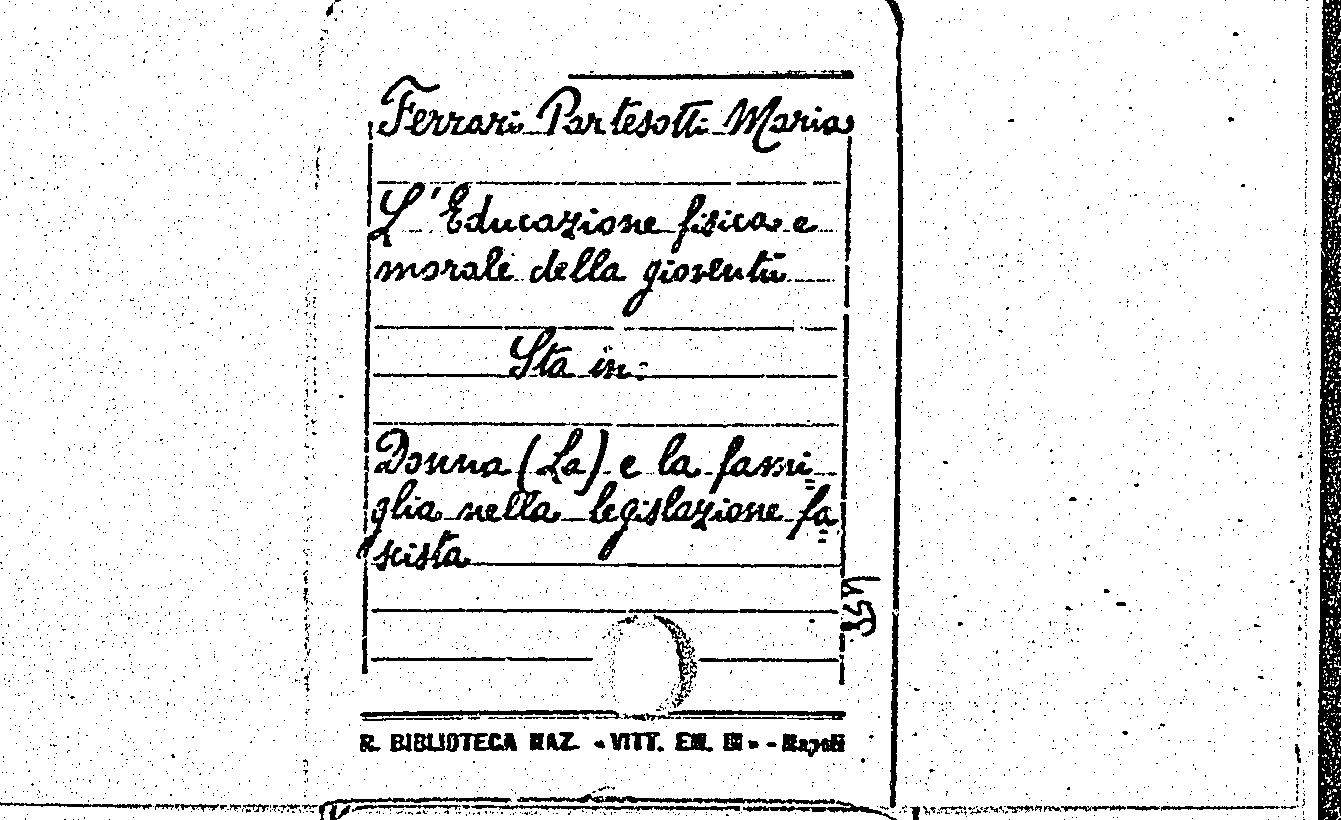 Ferrari Partesotti Maria
L'Educazione fisica e
morale della gioventù
Sta in:
Donna (La) e la fami=
glia nella legislazione fa=
scista
R. BIBLIOTECA NAZ. «VITT. EM. III» - Napoli